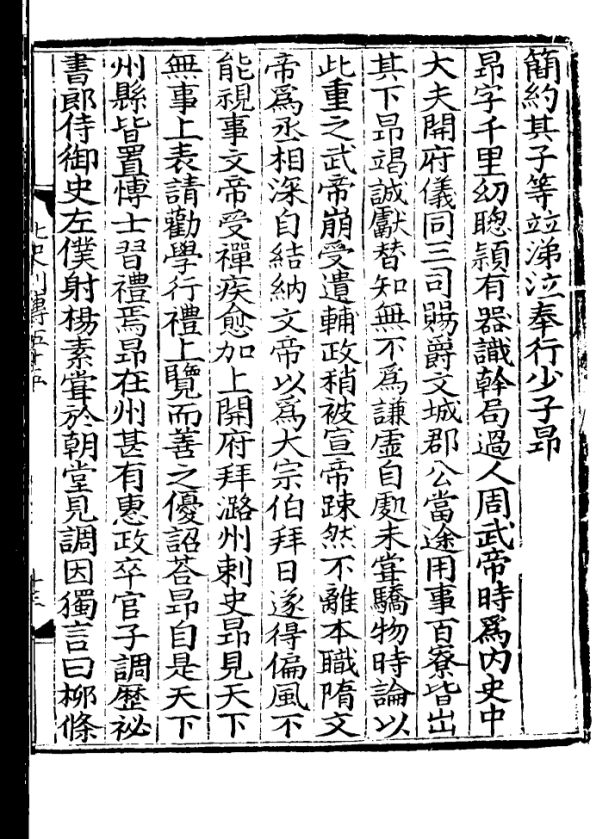 簡約其子等竝涕泣奉行少子昂
昂字千里幼聰頴有器識幹局過人周武帝時爲内史中
大夫開府儀同三司賜爵文城郡公當途用事百寮皆出
其下昂竭誠獻替知無不爲謙虚自處未甞驕物時論以
此重之武帝崩受遺輔政稍被宣帝踈然不離本職隋文
帝爲丞相深自結納文帝以爲大宗伯拜日遂得偏風不
能視事文帝受禪疾愈加上開府拜潞州刺史昂見天下
無事上表請勸學行禮上覽而善之優詔荅昂自是天下
州縣皆置愽士習禮焉昂在州甚有惠政卒官子調歷祕
書郎侍御史左僕射楊素甞於朝堂見調因獨言曰柳條
北史列傳五十五
十三